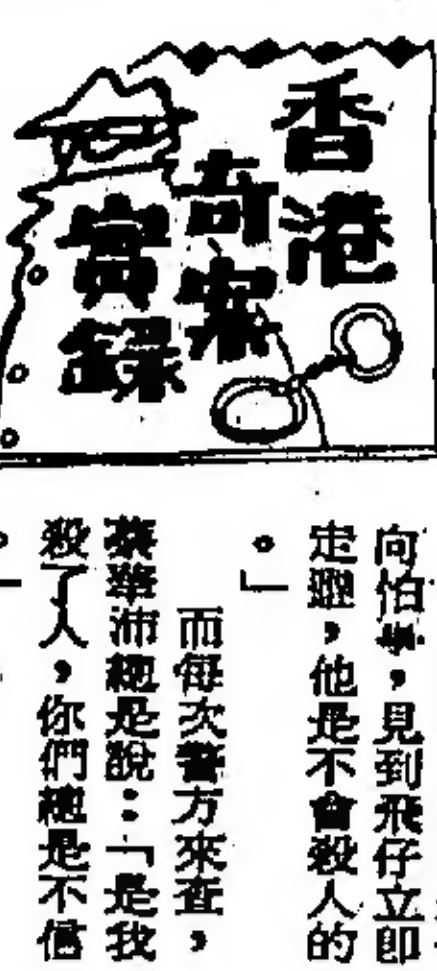 香港
奇案
實錄
向怕事，見到飛仔立即
走避，他是不會殺人的
。」
而每次警方來查，
蔡華沛總是說：「是我
殺了人，你們總是不信
。」